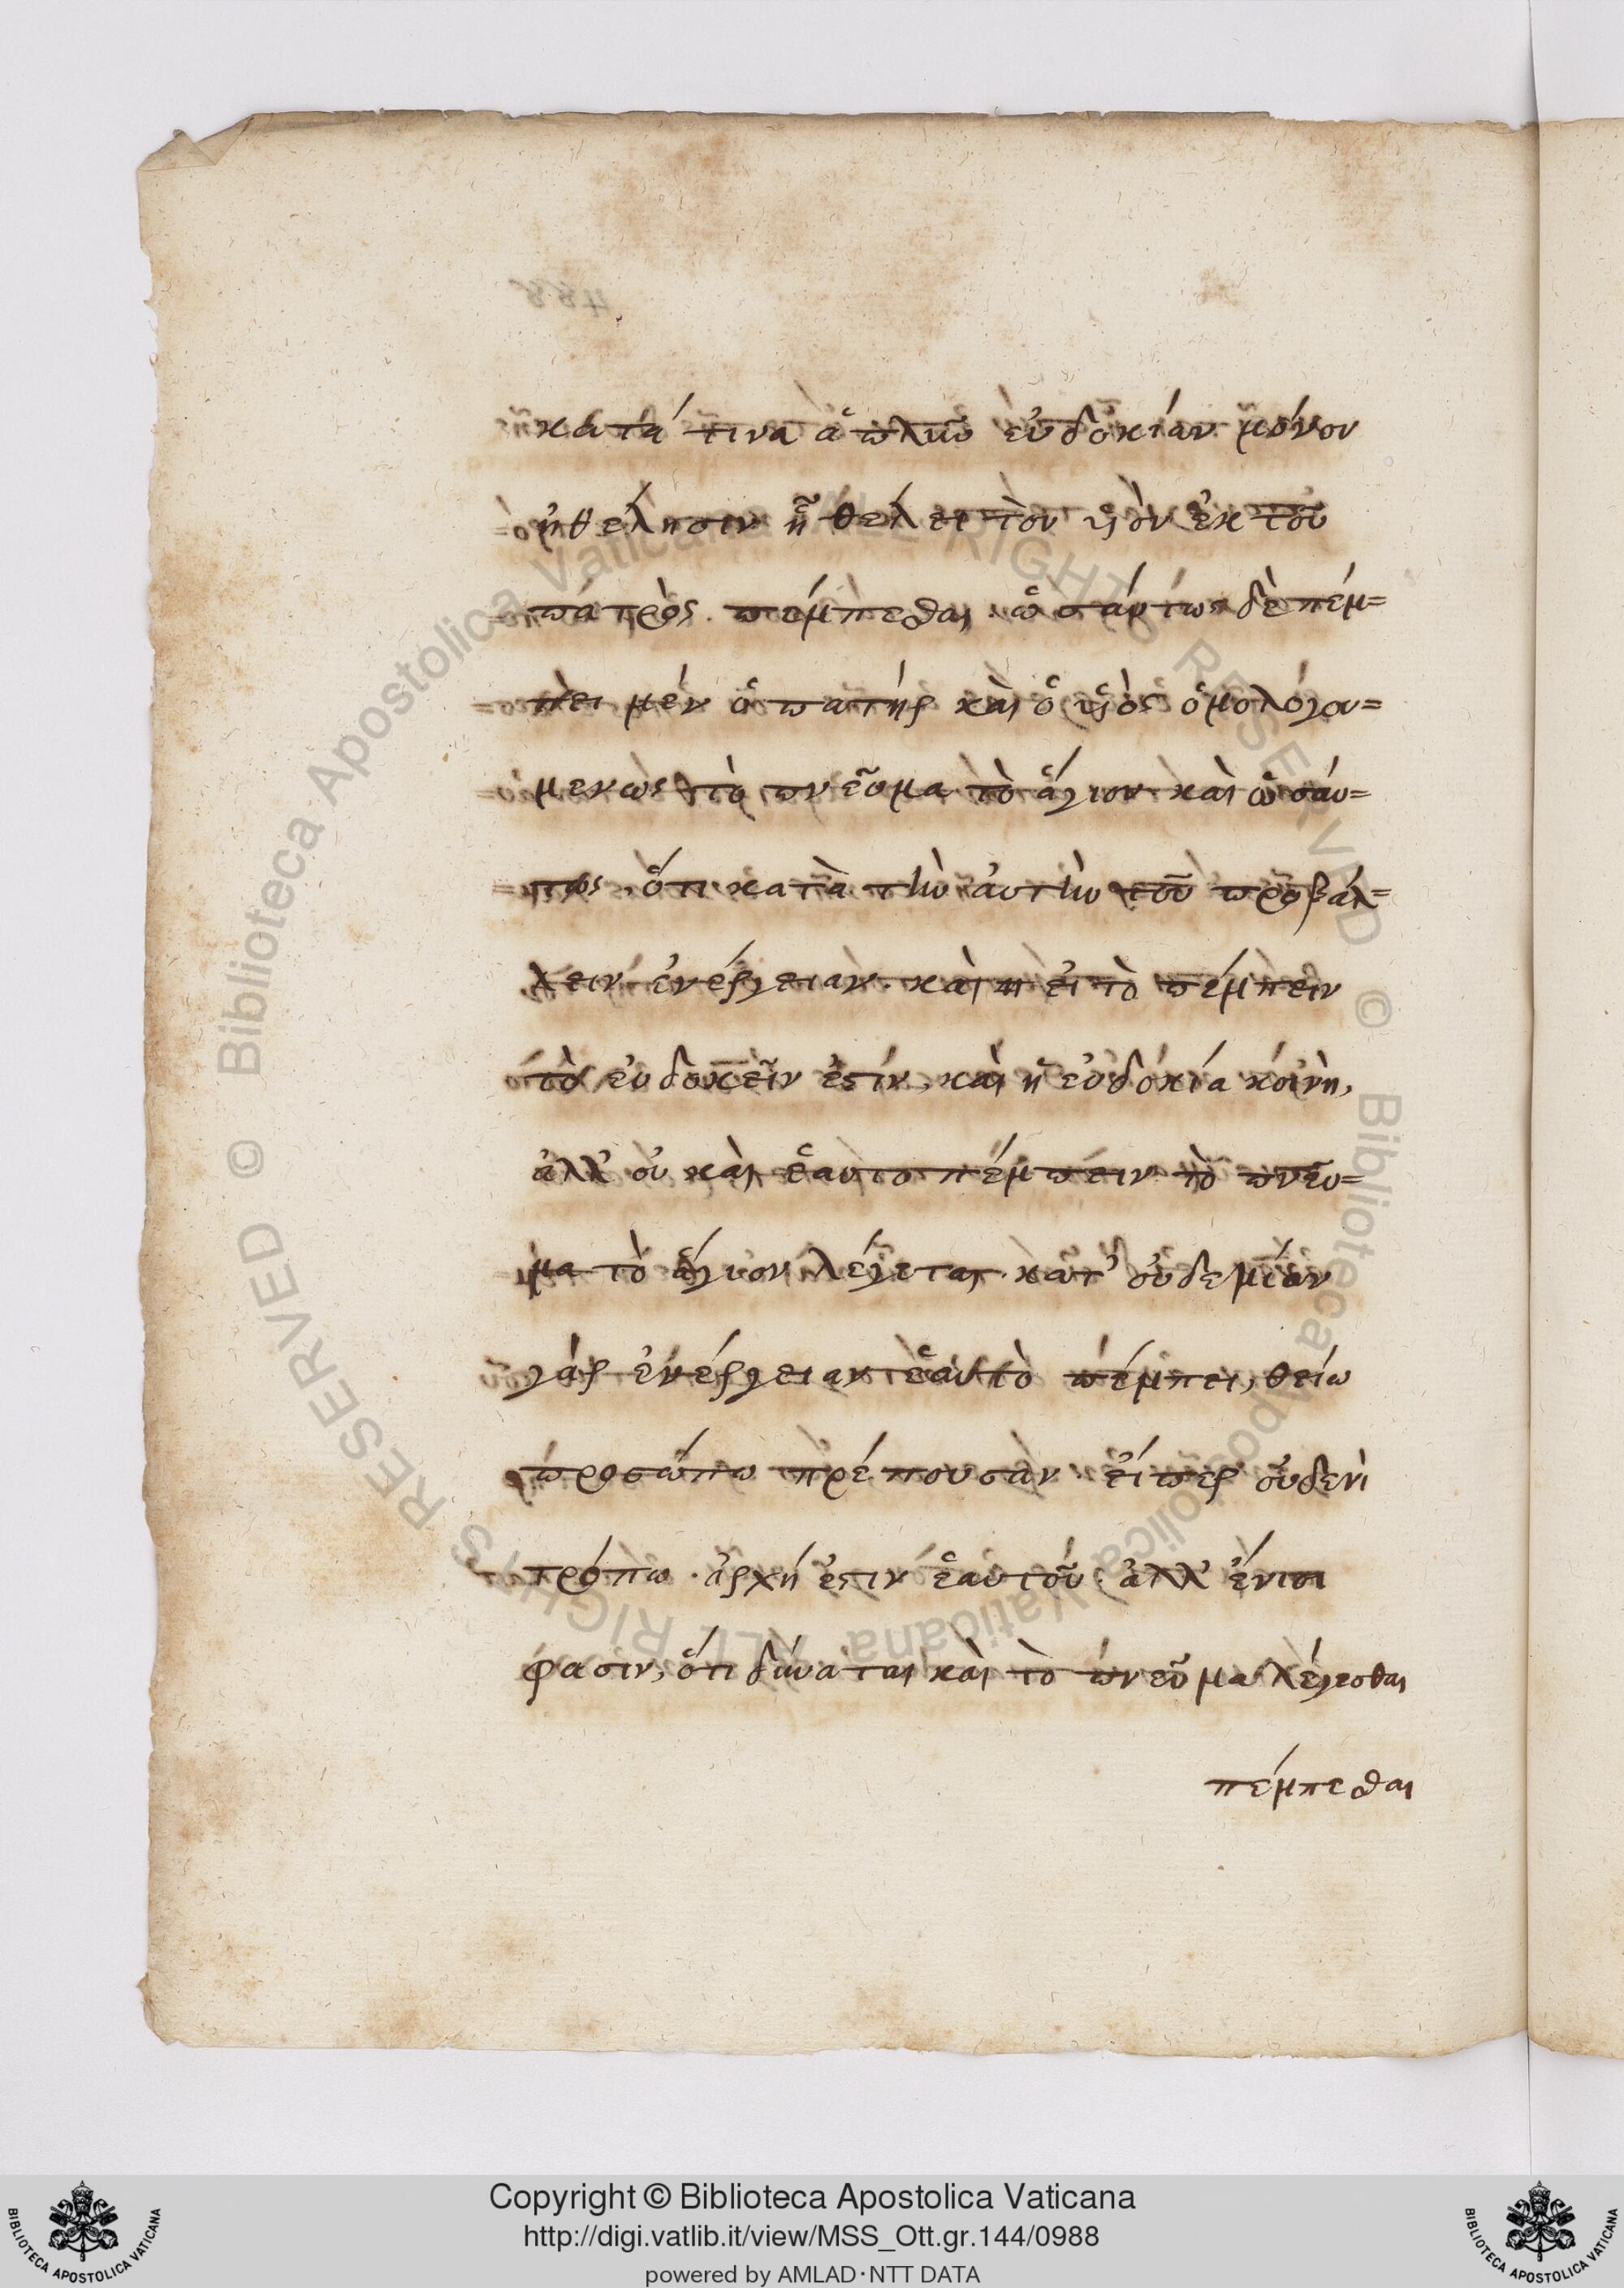 κατά τινα ἁπλῶς εὐδοκίαν μόνον
ἢ θέλησιν ἣ θέλει τὸν υἱὸν ἐκ τοῦ
πατρὸς πέμπεσθαι· ὡσαύτως δὲ πέμ=
πει μὲν ὁ πατὴρ καὶ ὁ υἱὸς ὁμολογου=
μένως τὸ πνεῦμα τὸ ἅγιον καὶ ὡσαύ=
τως, ὅτι κατὰ τὴν αὐτὴν τοῦ προβάλ=
λειν ἐνέργειαν. καὶ εἰ τὸ πέμπειν
τὸ εὐδοκεῖν ἐστίν, καὶ ἡ εὐδοκία κοινὴ,
ἀλλ' οὐ καὶ ἑαυτο πέμπειν τὸ πνεῦ=
μα τὸ ἅγιον λέγεται· κατ' οὐδεμίαν
γὰρ ἐνέργειαν ἑαυτὸ πέμπει, θείω
προσώπω πρέπουσαν· εἴπερ οὐδενὶ
τρόπω ἀρχή ἐστιν ἑαυτοῦ· ἀλλ' ἔνιοι
φασιν, ὅτι δύναται καὶ τὸ πνεῦμα λέγεσθαι
πέμπεσθαι
Copyright © Biblioteca Apostolica Vaticana
http://digi.vatlib.it/view/MSS_Ott.gr.144/0988
powered by AMLAD·NTT DATA